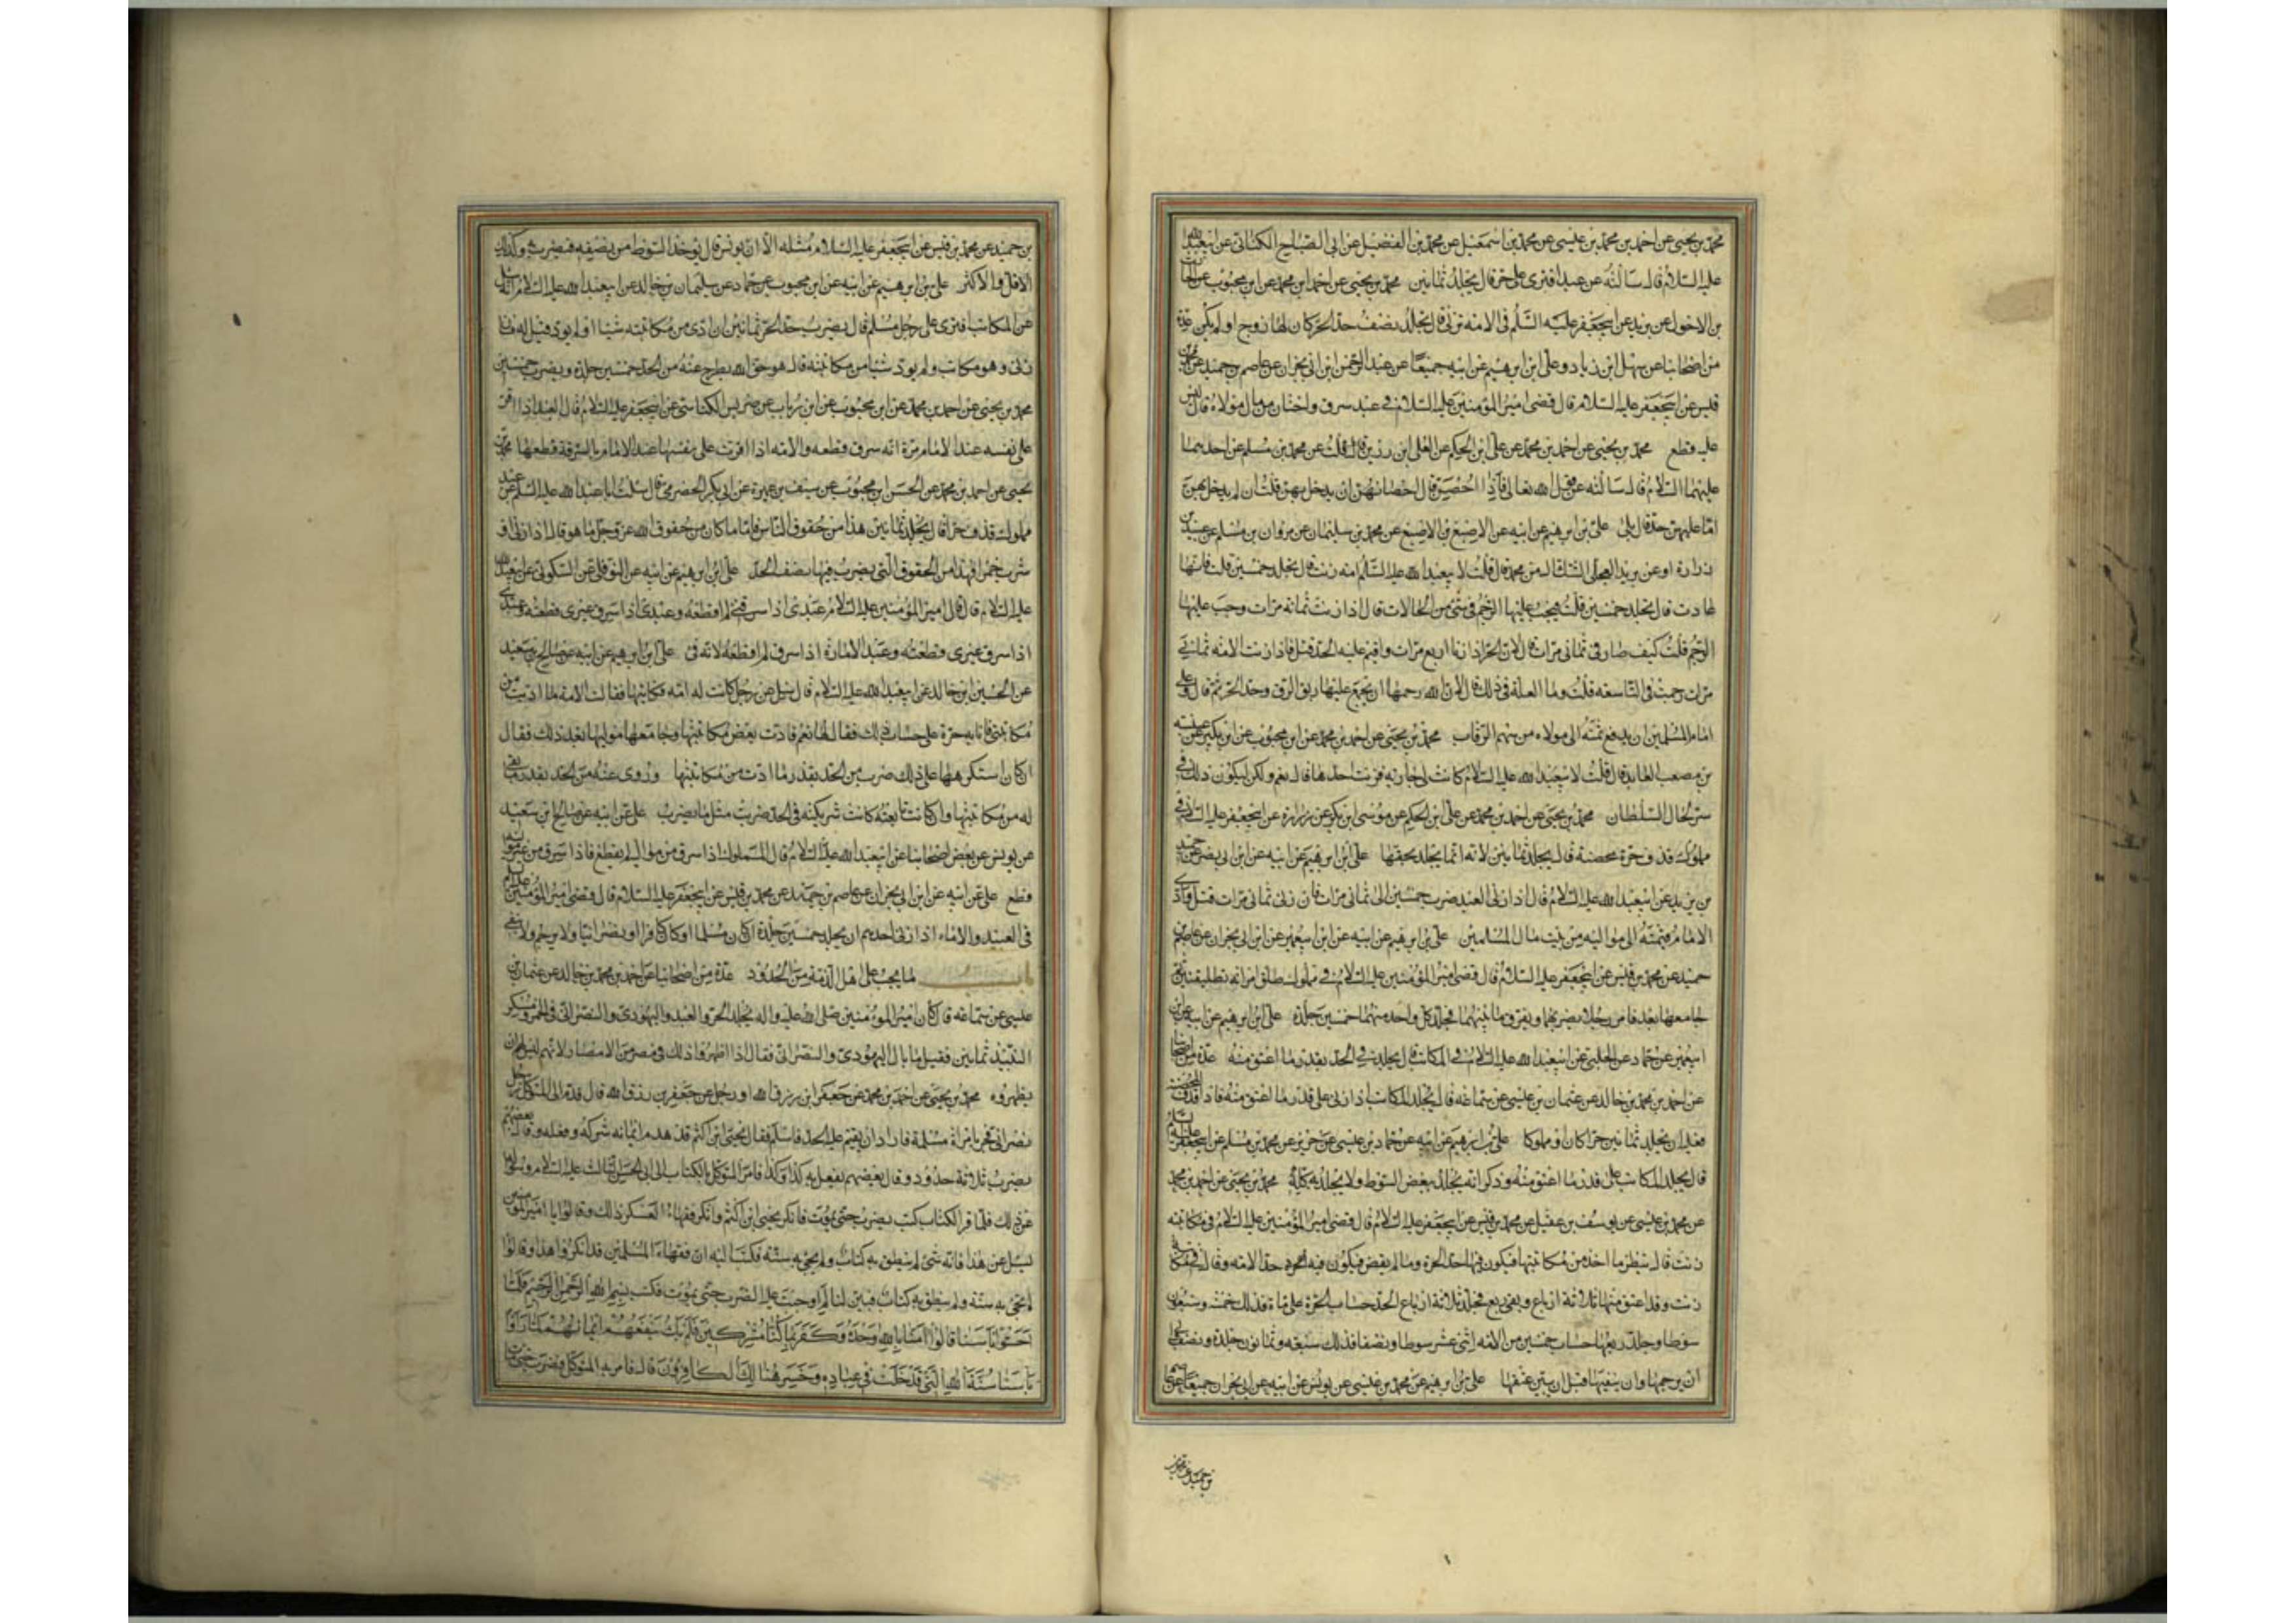 محمد بن يحيى عن احمد بن محمد بن عيسى عن محمد بن اسمعيل عن محمد بن الفضيل عن ابى الصباح الكنانى عن ابيعبد الله
عليه السلام قال سألته عن عبد افترى على حر قال يجلد ثمانين محمد بن يحيى عن احمد ابن محمد عن ابن محبوب عن الحارث
بن الاحول عن بريد عن ابيجعفر عليه السلم فى الامة تزنى قال يجلد نصف حد الحر كان لها زوج او لم يكن عدة
من اصحابنا عن سهل ابن زياد وعلى ابن ابرهيم عن ابيه جميعا عن عبد الرحمن ابن ابى نجران عن عاصم بن حميد عن محمد بن
قيس عن ابيجعفر عليه السلام قال قضى امير المؤمنين عليه السلام فى عبد سرق واختان من مال مولاه قال ليس
عليه قطع محمد بن يحيى عن احمد بن محمد عن على ابن الحكم عن العلى ابن رزين قال قلت عن محمد بن مسلم عن احدهما
عليهما السلام قال سألته عن قول الله تعالى فاذا احصن قال احصانهن ان يدخل بهن قلت ان لم يدخل بهن
اما عليهن حد قال بلى على بن ابرهيم عن ابيه عن الاصبغ بن الاصبغ عن محمد بن سليمان عن مروان بن مسلم عن عبيد بن
زرارة او عن بريد العجلى الشك من محمد قال قلت لابيعبد الله عليه السلم امة زنت قال يجلد خمسين قلت فانها
عادت قال يجلد خمسين قلت فيجب عليها الرجم فى شئ من الحالات قال اذا زنت ثمانه مرات وجب عليها
الرجم قلت كيف صار فى ثمانى مرات قال لان الحر اذا زنا اربع مرات واقيم عليه الحد قتل فاذا زنت الامة ثمانى
مرات رجمت فى التاسعه قلت وما العلة فى ذلك قال لان الله رحمها ان يجمع عليها ربق الرق وحد الحر ثم قال وعلى
امام المسلمين ان يدفع ثمنه الى مولاه من سهم الرقاب محمد بن يحيى عن احمد بن محمد عن ابن محبوب عن ابن بكير عن عنبسه
بن مصعب العابد قال قلت لابيعبد الله عليه السلام كانت لى جاريه فزنت احدها قال نعم ولكن ليكون ذلك فى
ستر لحال السلطان محمد بن يحيى عن احمد بن محمد عن على ابن الحكم عن موسى ابن بكر عن زرارة عن ابيجعفر عليه السلام فى
مملوك قذف حرة محصنة قال يجلد ثمانين لانه انما يجلد بحقها على ابن ابرهيم عن ابيه عن ابن ابى نصر عن حميد
بن يزيد عن ابيعبد الله عليه السلام قال اذا زنى العبد ضرب خمسين الى ثمانى مرات فان زنى ثمانى مرات قتل وادى
الامام قيمته الى مواليه من بيت مال المسلمين على بن ابرهيم عن ابيه عن ابن ابيعمير عن ابن ابى نجران عن عاصم بن
حميد عن محمد بن قيس عن ابيجعفر عليه السلام قال قضى امير المؤمنين عليه السلام فى مملوك طلق امراته تطليقتين ثم
جامعها بعد فامر رجلا يضربهما ويفرق ما بينهما فجلد كل واحد منهما خمسين جلدة على ابن ابرهيم عن ابيه عن ابن
ابيعمير عن حماد عن الحلبى عن ابيعبد الله عليه السلام فى المكاتب قال يجلد فى الحد بقدر ما اعتق منه عدة من اصحابنا
عن احمد بن محمد بن خالد عن عثمان بن عليسى عن سماعة قال يجلد المكاتب اذا زنى على قدر ما اعتق منه فاذا قذف المحصنة
فعليه ان يجلد ثمانين حرا كان او مملوكا على بن ابرهيم عن ابيه عن حماد بن عيسى عن حريز عن محمد بن مسلم عن ابيجعفر عليه السلام
قال يجلد المكاتب على قدر ما اعتق منه وذكر انه يجلد ببعض السوط ولا يجلد به كله محمد بن يحيى عن احمد بن محمد
عن محمد بن عيسى عن يوسف بن عقيل عن محمد بن قيس عن ابيجعفر عليه السلام قال قضى امير المؤمنين عليه السلام فى مكاتبه
زنت قال ينظر ما اخذ من مكاتبتها فيكون فيها حد الحرة وما لم يقض فيكون فيه حد الامه وقال فى مكاتبة
زنت وقد اعتق منها ثلاثة ارباع وبقى ربع فجلدت ثلاثة ارباع الحد حساب الحرة على مائة فذلك خمسة وسبعون
سوطا وجلد ربعها حساب خمسين من الامه اثنى عشر سوطا ونصفا فذلك سبعه وثمانون جلدة ونصف وابى
ان يرجمها وان ينفيها قبل ان يبين عتقها على بن ابرهيم عن محمد بن عيسى عن يونس عن ابيه عن ابى نجران جميعا عن عاصم
بن حميد عن محمد بن
بن حميد عن محمد بن قيس عن ابيجعفر عليه السلام مثله الا ان يونس قال يوخذ السوط من نصفه فيضرب به وكذلك
الاقل والاكثر على بن ابرهيم عن ابيه عن ابن محبوب عن حماد عن سليمان بن خالد عن ابيعبد الله عليه السلام انه سئل
عن المكاتب افترى على رجل مسلم قال يضرب حد الحر ثمانين ان ادى من مكاتبته شيئا او لم يود قيل له فان
زنى وهو مكاتب ولم يود شيئا من مكاتبته قال هو حق الله يطرح عنه من الحد خمسين جلدة ويضرب خمسين
محمد بن يحيى عن احمد بن محمد عن ابن محبوب عن ابن رياب عن ضريس الكناسى عن ابيجعفر عليه السلام قال العبد اذا اقر
على نفسه عند الامام مرة انه سرق قطعه والامه اذا اقرت على نفسها عند الامام بالسرقة قطعها محمد بن
يحيى عن احمد بن محمد عن الحسن ابن محبوب عن سيف بن عميرة عن ابى بكر الحضرمى قال سئلت ابا عبد الله عليه السلم عن عبد
مملوك قذف حرا قال يجلد ثمانين هذا من حقوق الناس فاما ما كان من حقوق الله عز وجل ما هو قال اذا زنى او
شرب خمرا فهذا من الحقوق التى يضرب فيها نصف الحد على ابن ابرهيم عن ابيه عن النوفلى عن السكونى عن ابيعبد الله
عليه السلام قال قال امير المؤمنين عليه السلام عبدى اذا سرقنى لم اقطعه وعبدى اذا سرق غيرى قطعته وعبدى
اذا سرق غيرى قطعته وعبد الامارة اذا سرق لم اقطعه لانه فى على ابن ابرهيم عن ابيه عن صالح بن سعيد
عن الحسين ابن خالد عن ابيعبد الله عليه السلام قال سئل عن رجل كانت له امه فكاتبها فقالت الامة ما اديت من
مكاتبتى فانا به حرة على حساب ذلك فقال لها نعم فادت بعض مكاتبتها وجامعها موليها بعد ذلك فقال
ان كان استكرهها على ذلك ضرب من الحد بقدر ما ادت من مكاتبتها وروى عنه من الحد بقدر ما بقى
له من مكاتبتها وان كانت تابعته كانت شريكته فى الحد ضربت مثل ما يضرب على عن ابيه عن صالح ابن سعيد
عن يونس عن بعض اصحابنا عن ابيعبد الله عليه السلام قال المملوك اذا سرق من مواليه لم يقطع فاذا سرق من غير مواليه
قطع على عن ابيه عن ابن ابى نجران عن عاصم بن حميد عن محمد بن قيس عن ابيجعفر عليه السلام قال قضى امير المؤمنين عليه السلام
فى العبيد والاماء اذا زنى احدهم ان يجلد خمسين جلدة ان كان مسلما او كان كافرا او نصرانيا ولا يرجم ولا ينفى
باب ما يجب على اهل الذمة من الحدود عدة من اصحابنا عن احمد بن محمد بن خالد عن عثمان بن
عليسى عن سماعه قال كان امير المؤمنين صلى الله عليه واله يجلد الحر والعبد واليهودى والنصرانى فى الخمر ومسكر
النبيذ ثمانين فقيل ما بال اليهودى والنصرانى فقال اذا اظهروا ذلك فى مصر من الامصار لانهم ليس لهم ان
يظهروه محمد بن يحيى عن احمد بن محمد عن جعفر ابن رزق الله او رجل عن جعفر بن رزق الله قال قدم الى المتوكل رجل
نصرانى فجر بامراة مسلمة فاراد ان يقيم عليه الحد فاسلم فقال يحيى ابن اكثم قد هدم ايمانه شركه وفعله وقال بعضهم
يضرب ثلاثة حدود وقال بعضهم يفعل به كذا وكذا فامر المتوكل بالكتاب الى ابى الحسن الثالث عليه السلام وسؤاله
عن ذلك فلما قرا الكتاب كتب يضرب حتى يموت فانكر يحيى ابن اكثم وانكر فقهاء العسكر ذلك وقالوا يا امير المؤمنين
نسئل عن هذا فانه شئ لم ينطق به كتاب ولم يجئ به سنة فكتب اليه ان فقهاء المسلمين قد انكروا هذا وقالوا
لم يجئ به سنة ولم ينطق به كتاب فبين لنا لم اوجبت عليه الضرب حتى يموت فكتب بسم الله الرحمن الرحيم فلما
احسوا باسنا قالوا امنا بالله وحده وكفرنا بما كنا به مشركين فلم يك ينفعهم ايمانهم لما راوا
باسنا سنة الله التى قد خلت فى عباده وخسر هنالك الكافرون قال فامر به المتوكل فضرب حتى مات